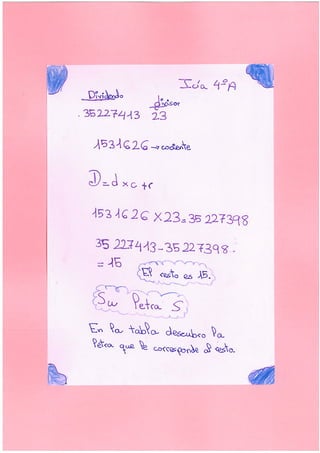 Icía 4ºA
Dividendo divisor
35227413 23
1531626 → cociente
D = d × c + r
1531626 × 23 = 35 227398
35 227413 - 35 227398.
= 15 El resto es 15.
Su Petra S
En la tabla descubro la
letra que le corresponde al resto.